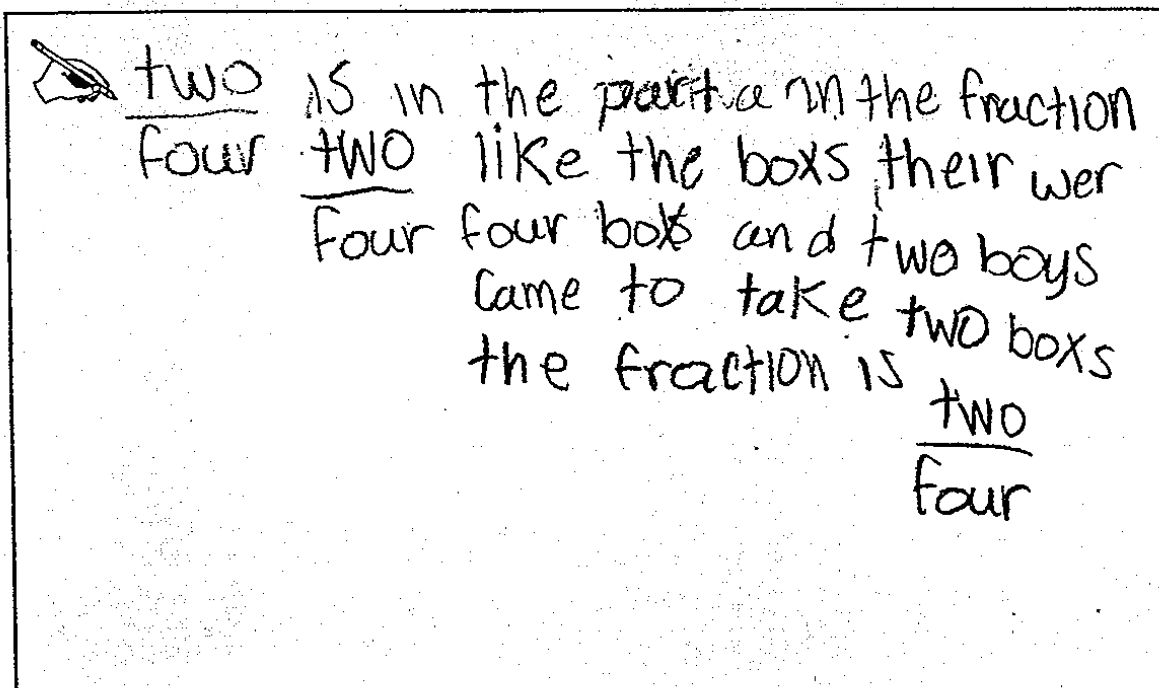 two is in the part a in the fraction
four two like the boxs their wer
four four boxs and two boys
came to take two boxs
the fraction is
two
four